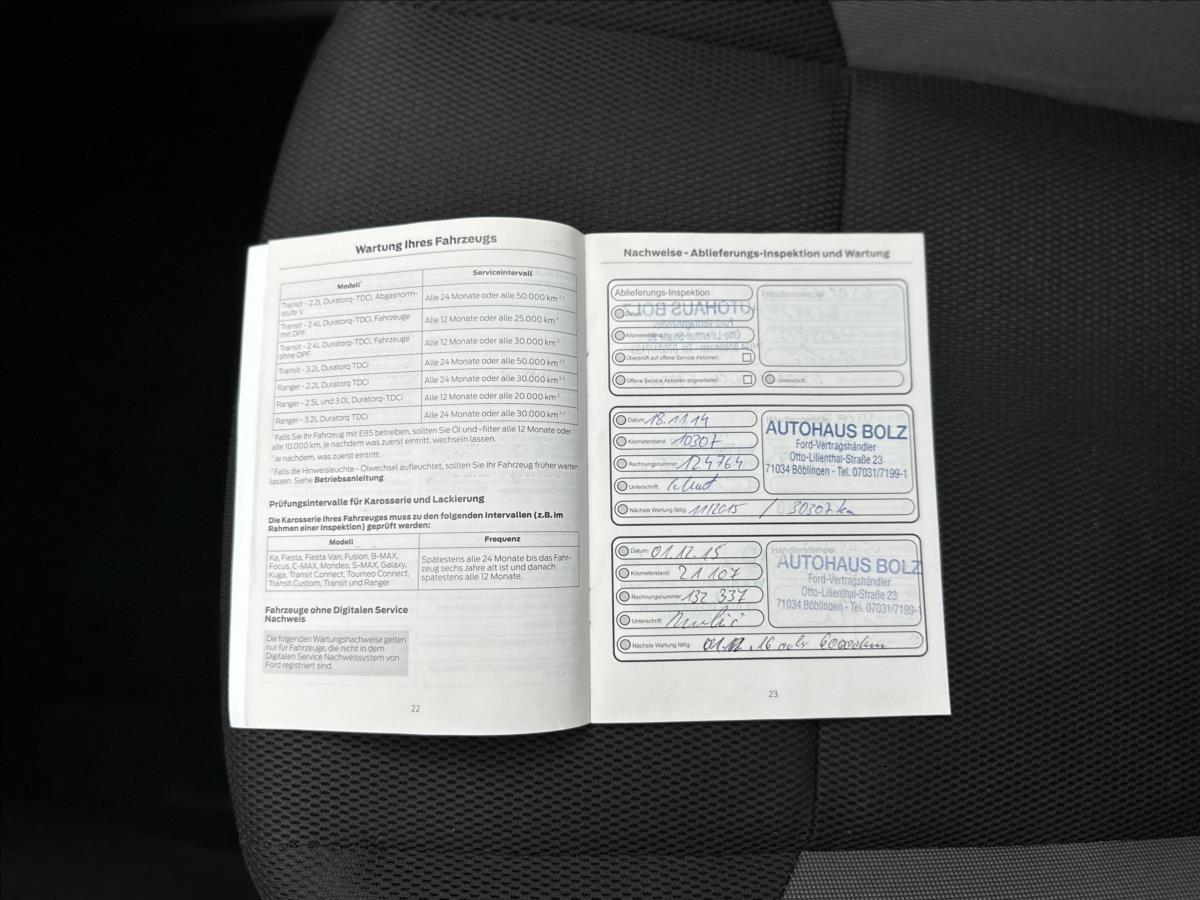 Wartung Ihres Fahrzeugs
Modell¹ Serviceintervall
Transit - 2.2L Duratorq-TDCi, Abgasnorm-
stufe V Alle 24 Monate oder alle 50.000 km
Transit - 2.4L Duratorq-TDCi, Fahrzeuge
mit DPF Alle 12 Monate oder alle 25.000 km
Transit - 2.4L Duratorq-TDCi, Fahrzeuge
ohne DPF Alle 12 Monate oder alle 30.000 km
Transit - 3.2L Duratorq TDCi Alle 24 Monate oder alle 50.000 km
Ranger - 2.2L Duratorq TDCi Alle 24 Monate oder alle 30.000 km
Ranger - 2.5L und 3.0L Duratorq-TDCi Alle 12 Monate oder alle 20.000 km
Ranger - 3.2L Duratorq TDCi Alle 24 Monate oder alle 30.000 km
¹Falls Sie Ihr Fahrzeug mit E85 betreiben, sollten Sie Öl und -filter alle 12 Monate oder
alle 10.000 km, je nachdem was zuerst eintritt, wechseln lassen.
²Je nachdem, was zuerst eintritt.
³Falls die Hinweisleuchte - Ölwechsel aufleuchtet, sollten Sie Ihr Fahrzeug früher warten
lassen. Siehe Betriebsanleitung.
Prüfungsintervalle für Karosserie und Lackierung
Die Karosserie Ihres Fahrzeuges muss zu den folgenden Intervallen (z.B. im
Rahmen einer Inspektion) geprüft werden:
Modell Frequenz
Ka, Fiesta, Fiesta Van, Fusion, B-MAX,
Focus, C-MAX, Mondeo, S-MAX, Galaxy,
Kuga, Transit Connect, Tourneo Connect,
Transit Custom, Transit und Ranger
Spätestens alle 24 Monate bis das Fahr-
zeug sechs Jahre alt ist und danach
spätestens alle 12 Monate.
Fahrzeuge ohne Digitalen Service
Nachweis
Die folgenden Wartungsnachweise gelten
nur für Fahrzeuge, die nicht in dem
Digitalen Service Nachweissystem von
Ford registriert sind.
22
Nachweise - Ablieferungs-Inspektion und Wartung
Ablieferungs-Inspektion
Händlerstempel
Datum:
Kilometerstand:
Überprüft auf offene Service Aktionen:
Offene Service Aktionen abgearbeitet:
Unterschrift:
Datum: 18.11.14
Kilometerstand: 10307
Rechnungsnummer: 124764
Unterschrift:
AUTOHAUS BOLZ
Ford-Vertragshändler
Otto-Lilienthal-Straße 23
71034 Böblingen - Tel. 07031/7199-1
Nächste Wartung fällig: 11/2015 / 30307 km
Datum: 01.12.15
Kilometerstand: 21107
Rechnungsnummer: 132 337
Unterschrift:
Händlerstempel
AUTOHAUS BOLZ
Ford-Vertragshändler
Otto-Lilienthal-Straße 23
71034 Böblingen - Tel. 07031/7199-1
Nächste Wartung fällig: 01.12.16 oder
23